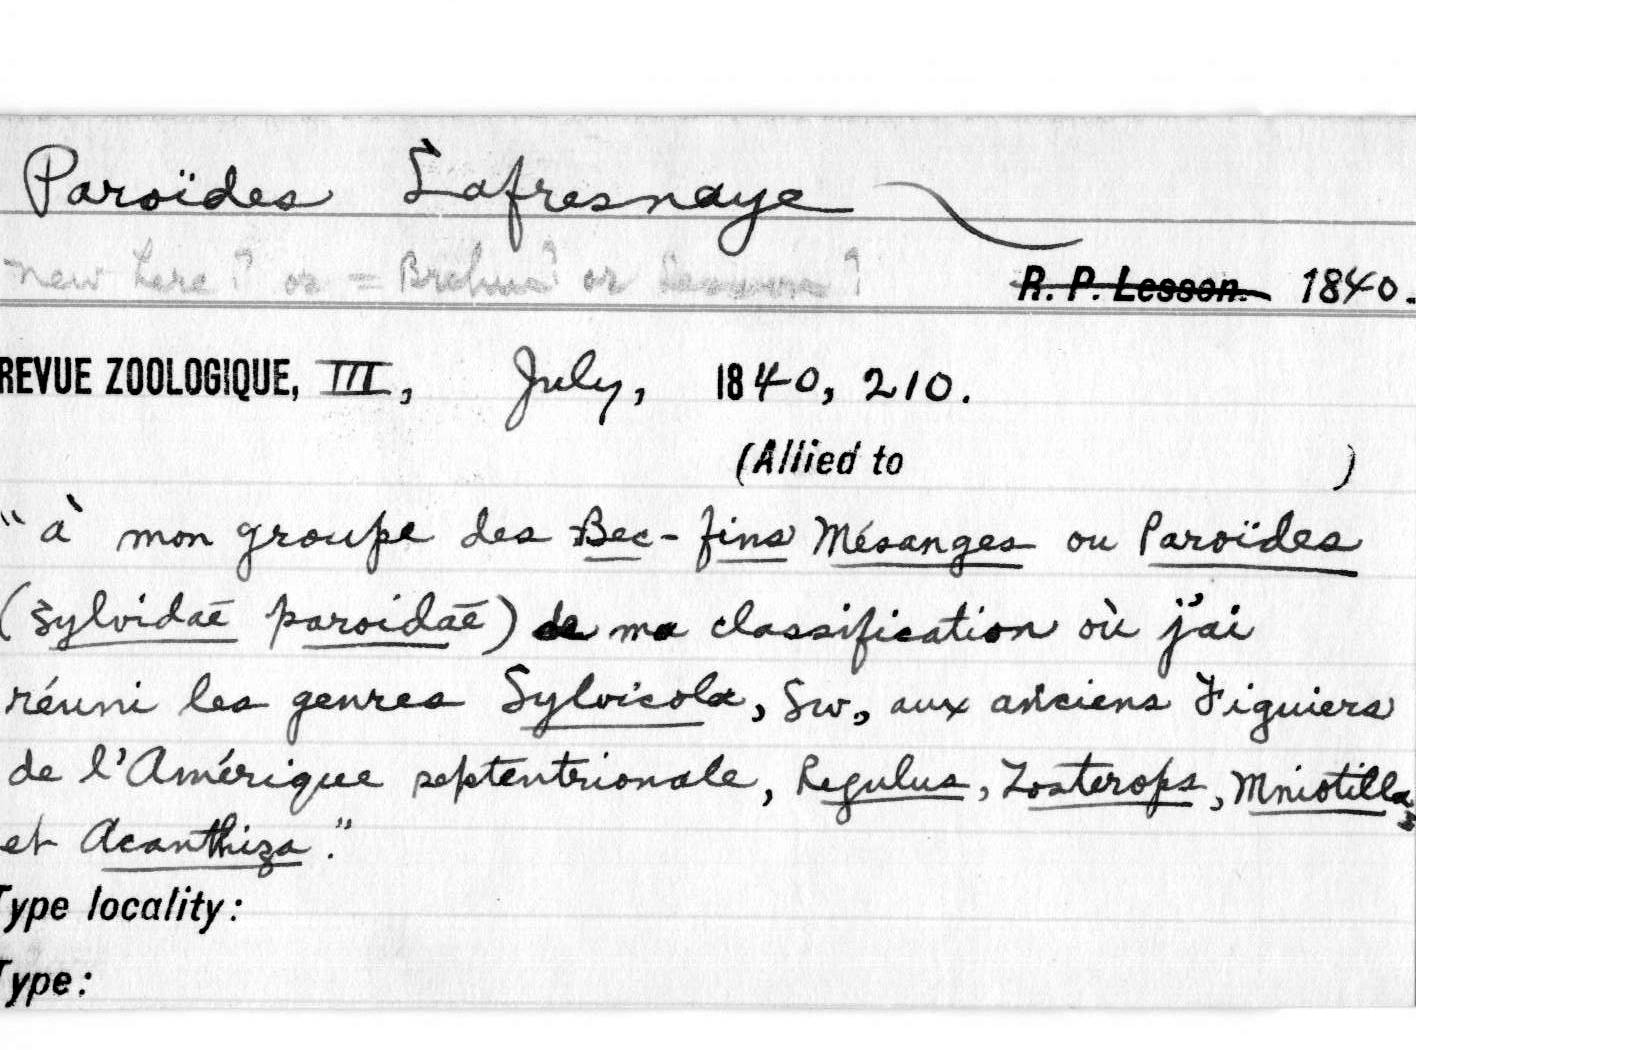 Paroïdes Lafresnaye
new here? or = Brehm's? or ?
R. P. Lesson. 1840.
REVUE ZOOLOGIQUE, III, July, 1840, 210.
(Allied to )
"à mon groupe des Bec-fins Mésanges ou Paroïdes
(Sylvidaē paroidaē) de ma classification où j'ai
réuni les genres Sylvicola, Sw., aux anciens Figuiers
de l'Amérique septentrionale, Regulus, Zosterops, Mniotilla,
et Acanthiza."
Type locality:
Type: